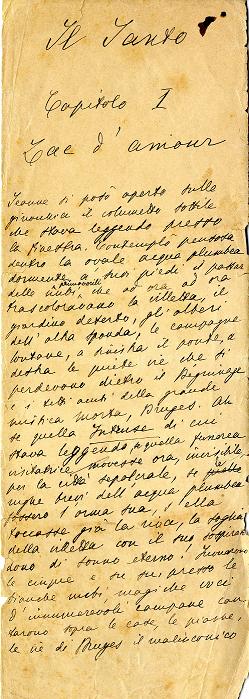 Il Santo
Capitolo I
Lac d'amour
Jeanne si posò aperto sulle
ginocchia il volumetto sottile
che stava leggendo presso
la finestra. Contemplò pensosa
dentro la ovale acqua plumbea
dormente a' suoi piedi il passar
delle nubi primaverili che ad ora ad ora
trascoloravano la villetta, il
giardino deserto, gli alberi
dell'altra sponda, le campagne
lontane, a sinistra il ponte, a
destra le quiete vie che si
perdevano dietro il Béguinage
e i tetti acuti della grande
mistica morta, Bruges. Ah
se quella Intruse di cui
stava leggendo, se quella funerea
visitatrice movesse ora, invisibile,
per la città sepolcrale, se le
rughe brevi dell'acqua plumbea
fossero l'orma sua, s'ella
toccasse già la riva, la soglia
della villetta con il suo sospirato
dono di sonno eterno! Suonarono
le cinque e su su, presso le
bianche nubi magiche voci
d'innumerevoli campane can
tarono sopra le case, le piazze,
le vie di Bruges il malinconico